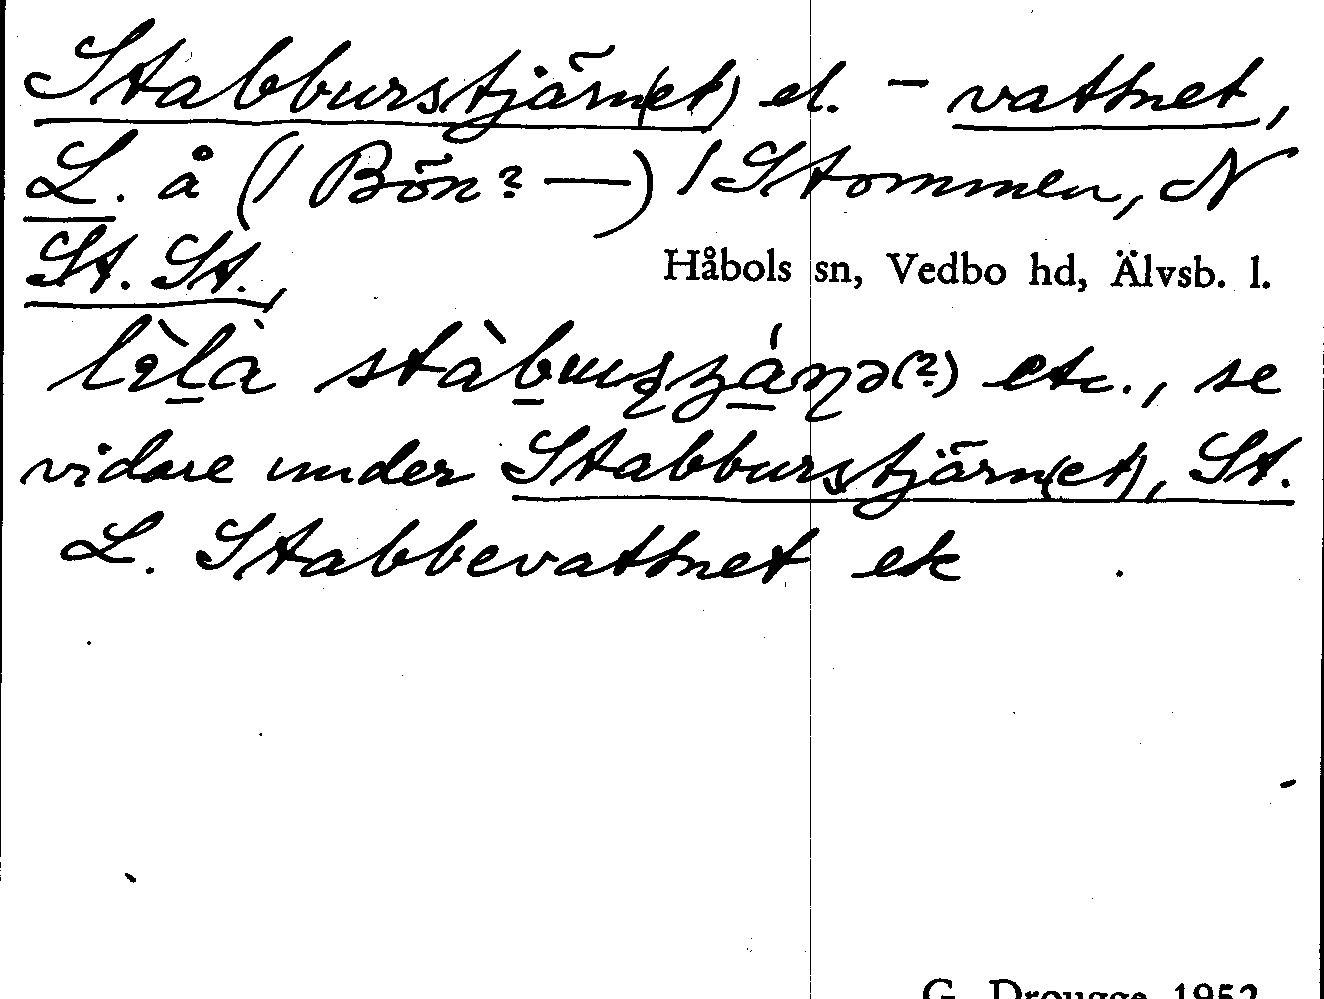 Stabburstjärn(et) el. - vattnet,
L. å (/ Bön? —) / Stommen, N
St. St.,
Håbols sn, Vedbo hd, Älvsb. l.
lìla stàbuʂʂáɳə(?) etc., se
vidare under Stabburstjärn(et), St.
L. Stabbevattnet ek
G. Drougge 1952